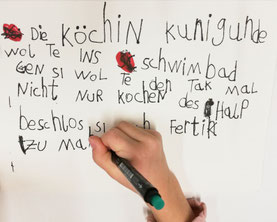 Die KÖCHiN KUNiGUNDE
WOL TE INS SCHWiMBAD
GEN Si WOL TE den TAK MAL
Nicht NUR KOCHEN des HALP
beschlos si h FERTiK
ZU MA